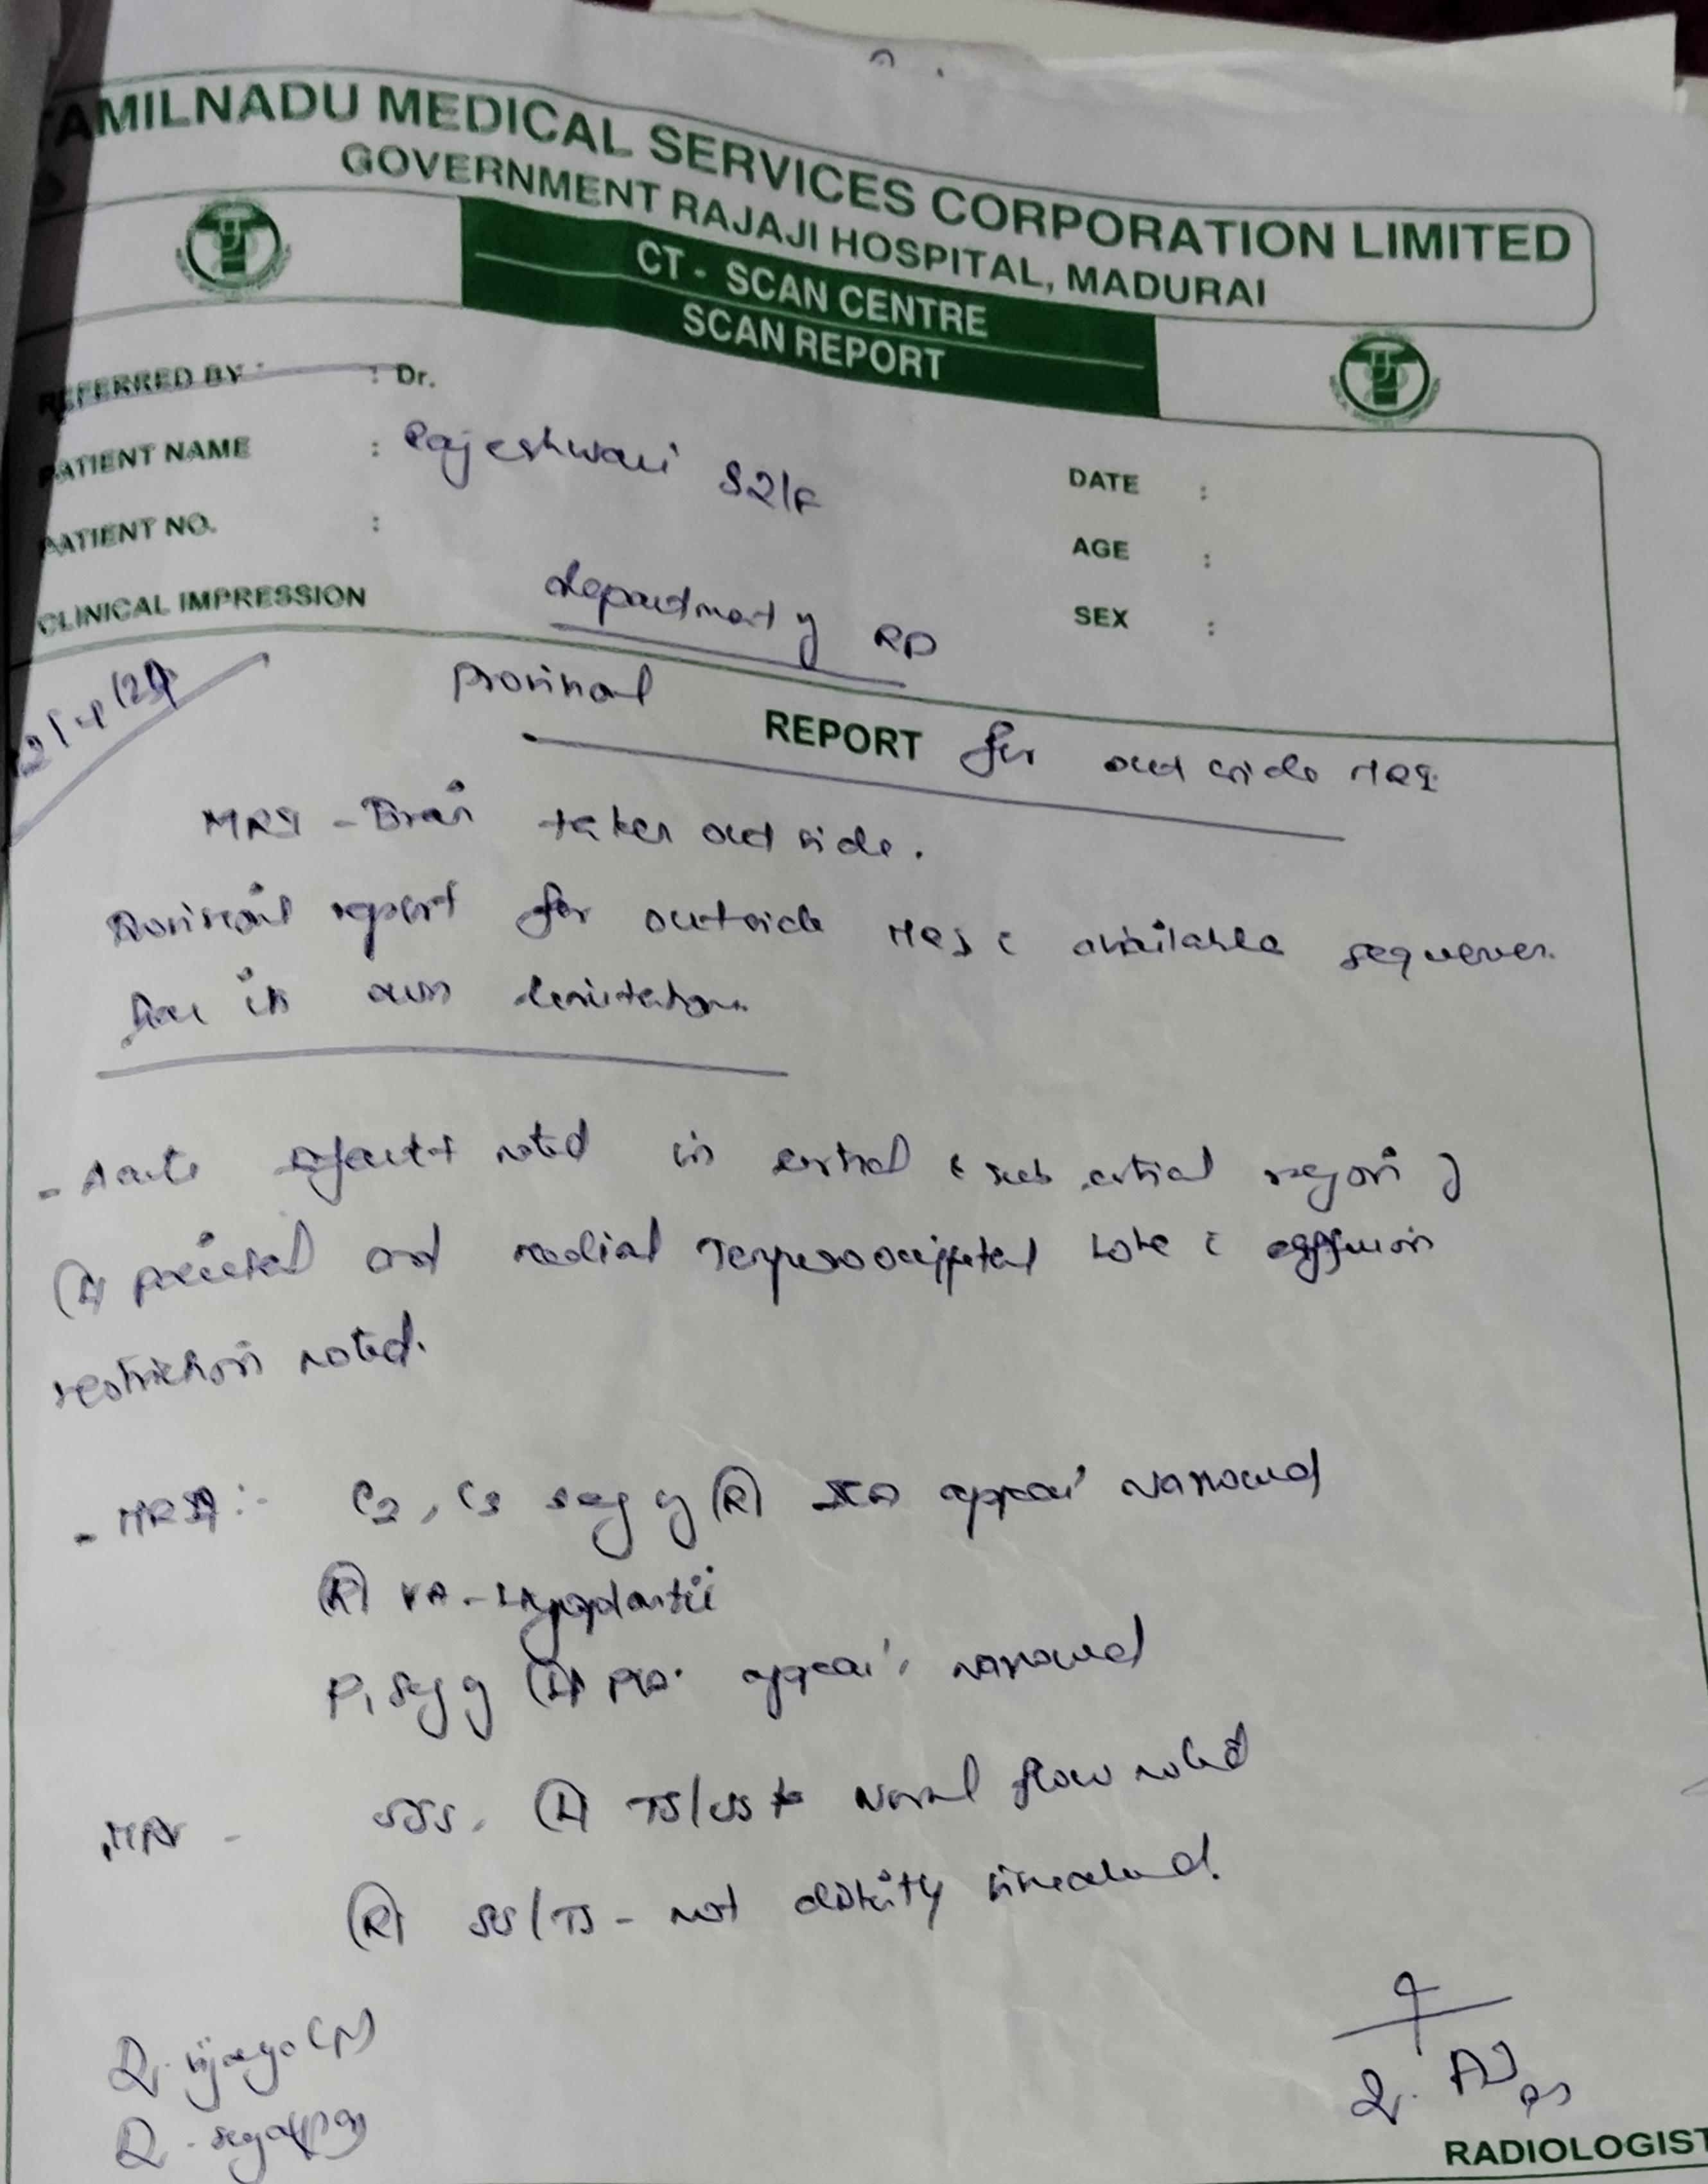 TAMILNADU MEDICAL SERVICES CORPORATION LIMITED
GOVERNMENT RAJAJI HOSPITAL, MADURAI
CT - SCAN CENTRE
SCAN REPORT
REFERRED BY : : Dr.
PATIENT NAME : Rajeshwari 52/F
DATE :
PATIENT NO. :
AGE :
CLINICAL IMPRESSION
department of RD
SEX :
Provisional
REPORT for outside MRI
MRI - Brain taken outside.
Provisional report for outside MRI c available sequences
has its own limitations.
- Acute infarct noted in cortical & sub cortical region of
(L) parietal and medial Temporooccipital lobe c diffusion
restriction noted.
- MRA :- C2, C3 seg of (R) ICA appear narrowed
(R) VA - Hypoplastic
P1 seg of (L) PCA appear narrowed
MRV - SSS, (L) TS/SS Normal flow noted
(R) SS/TS - not distinctly visualised.
Dr.
Dr.
Dr.
RADIOLOGIST